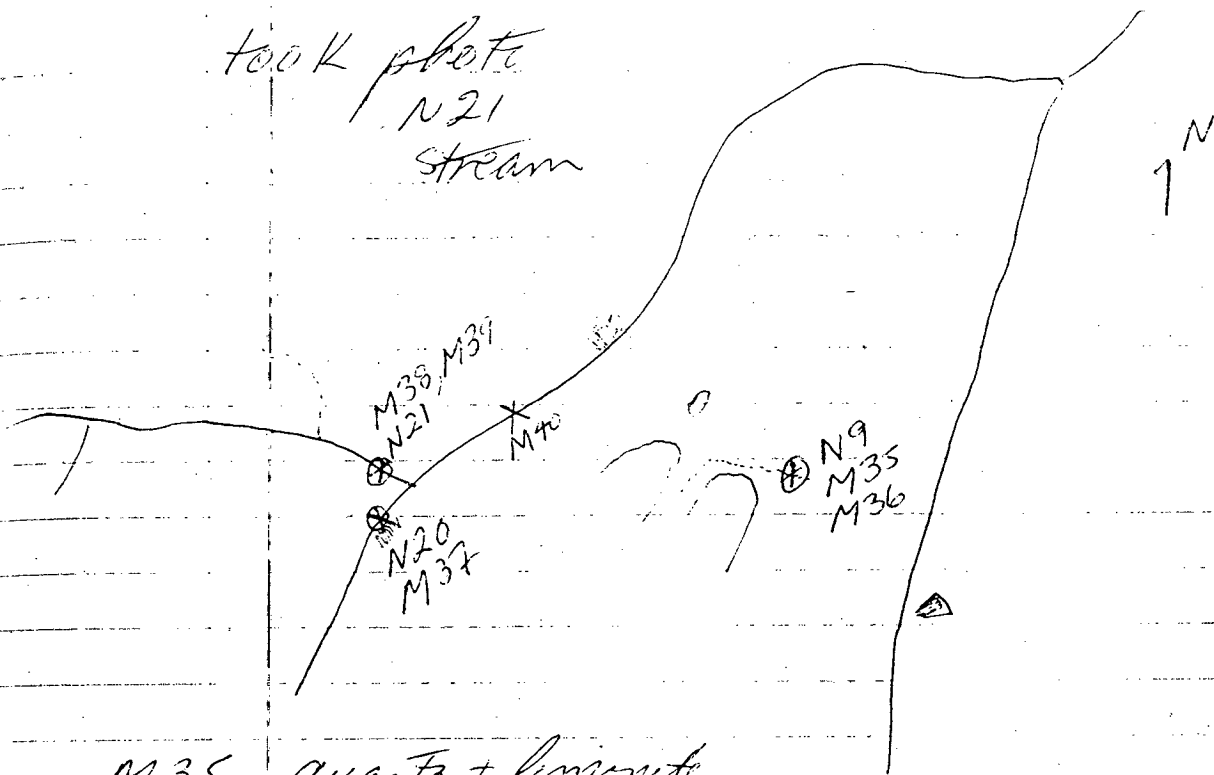 took photo
N21
stream
N
M38, M39
N21
M40
N9
M35
M36
N20
M37
M35 quartz + limonite